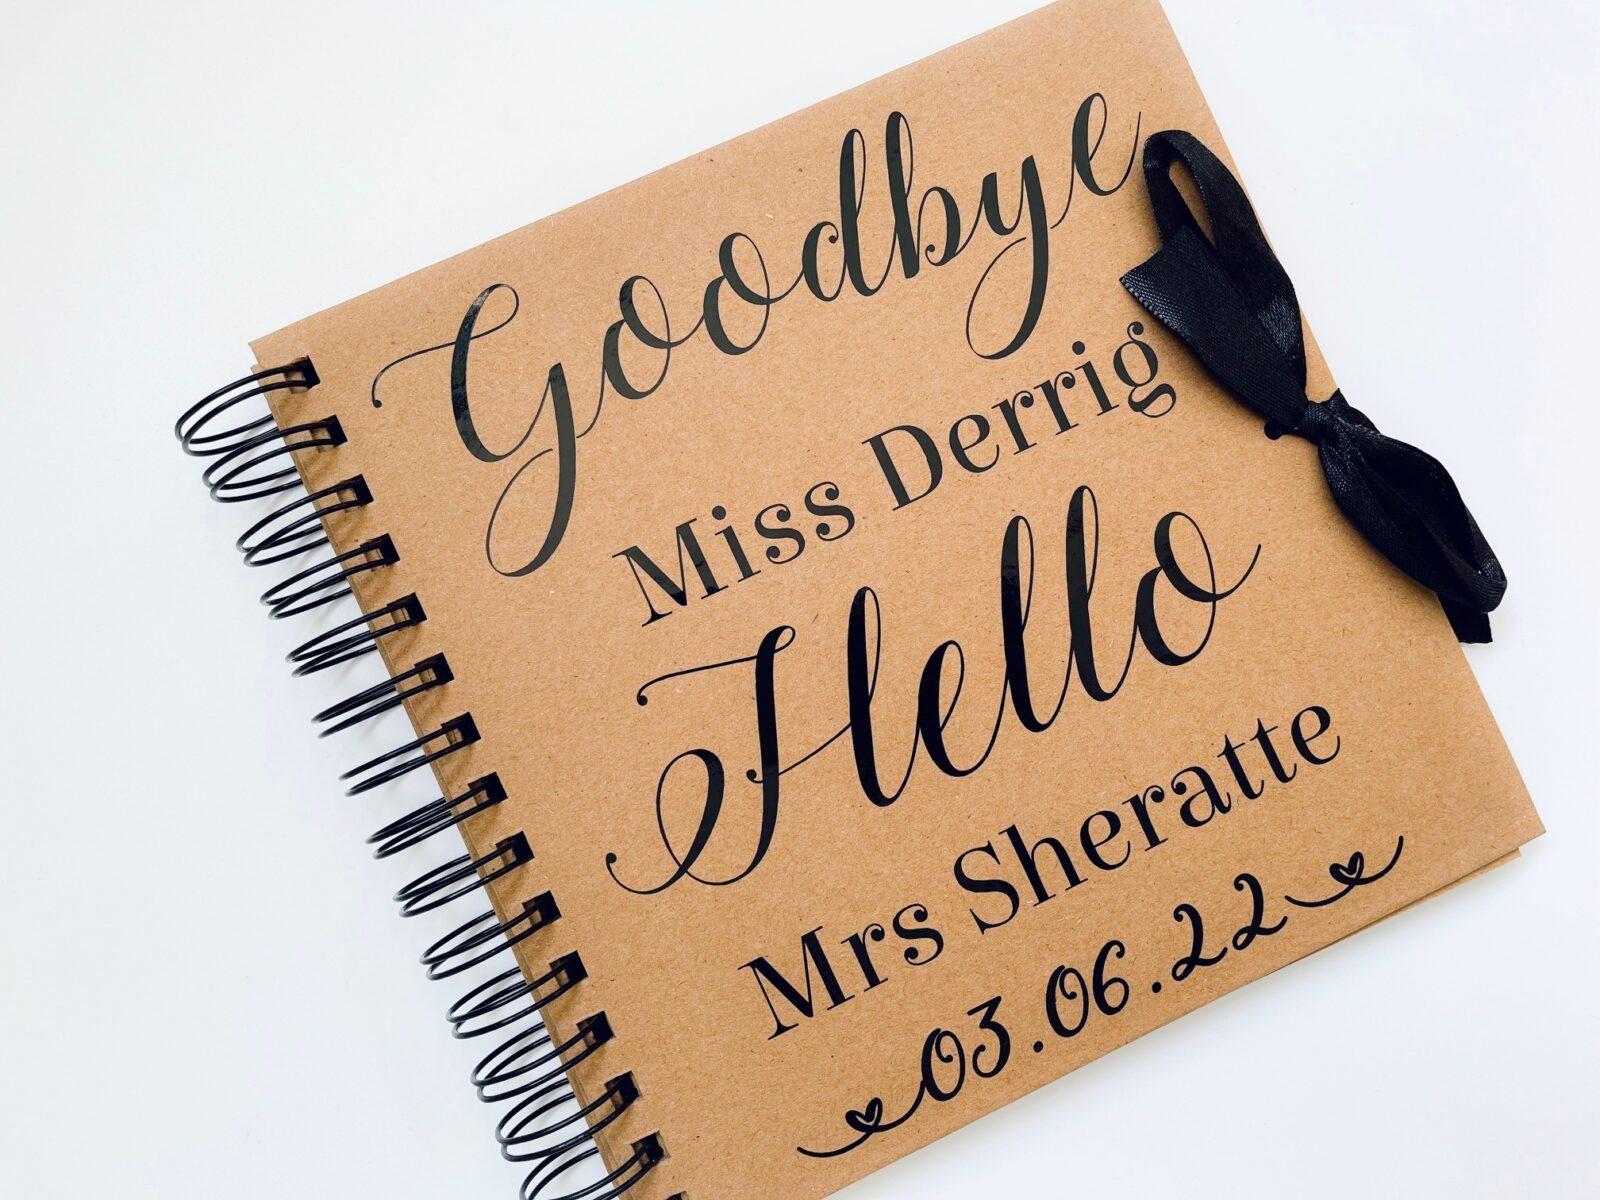 Goodbye
Miss Derrig
Hello
Mrs Sheratte
03.06.22